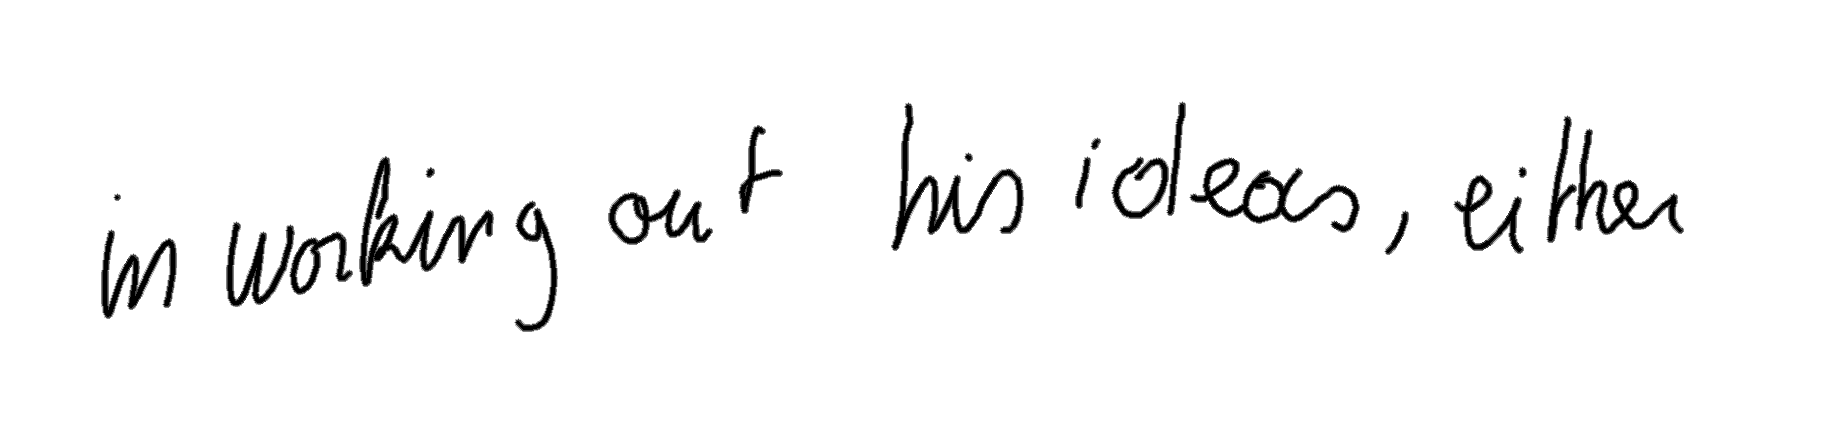 in working out his ideas, either